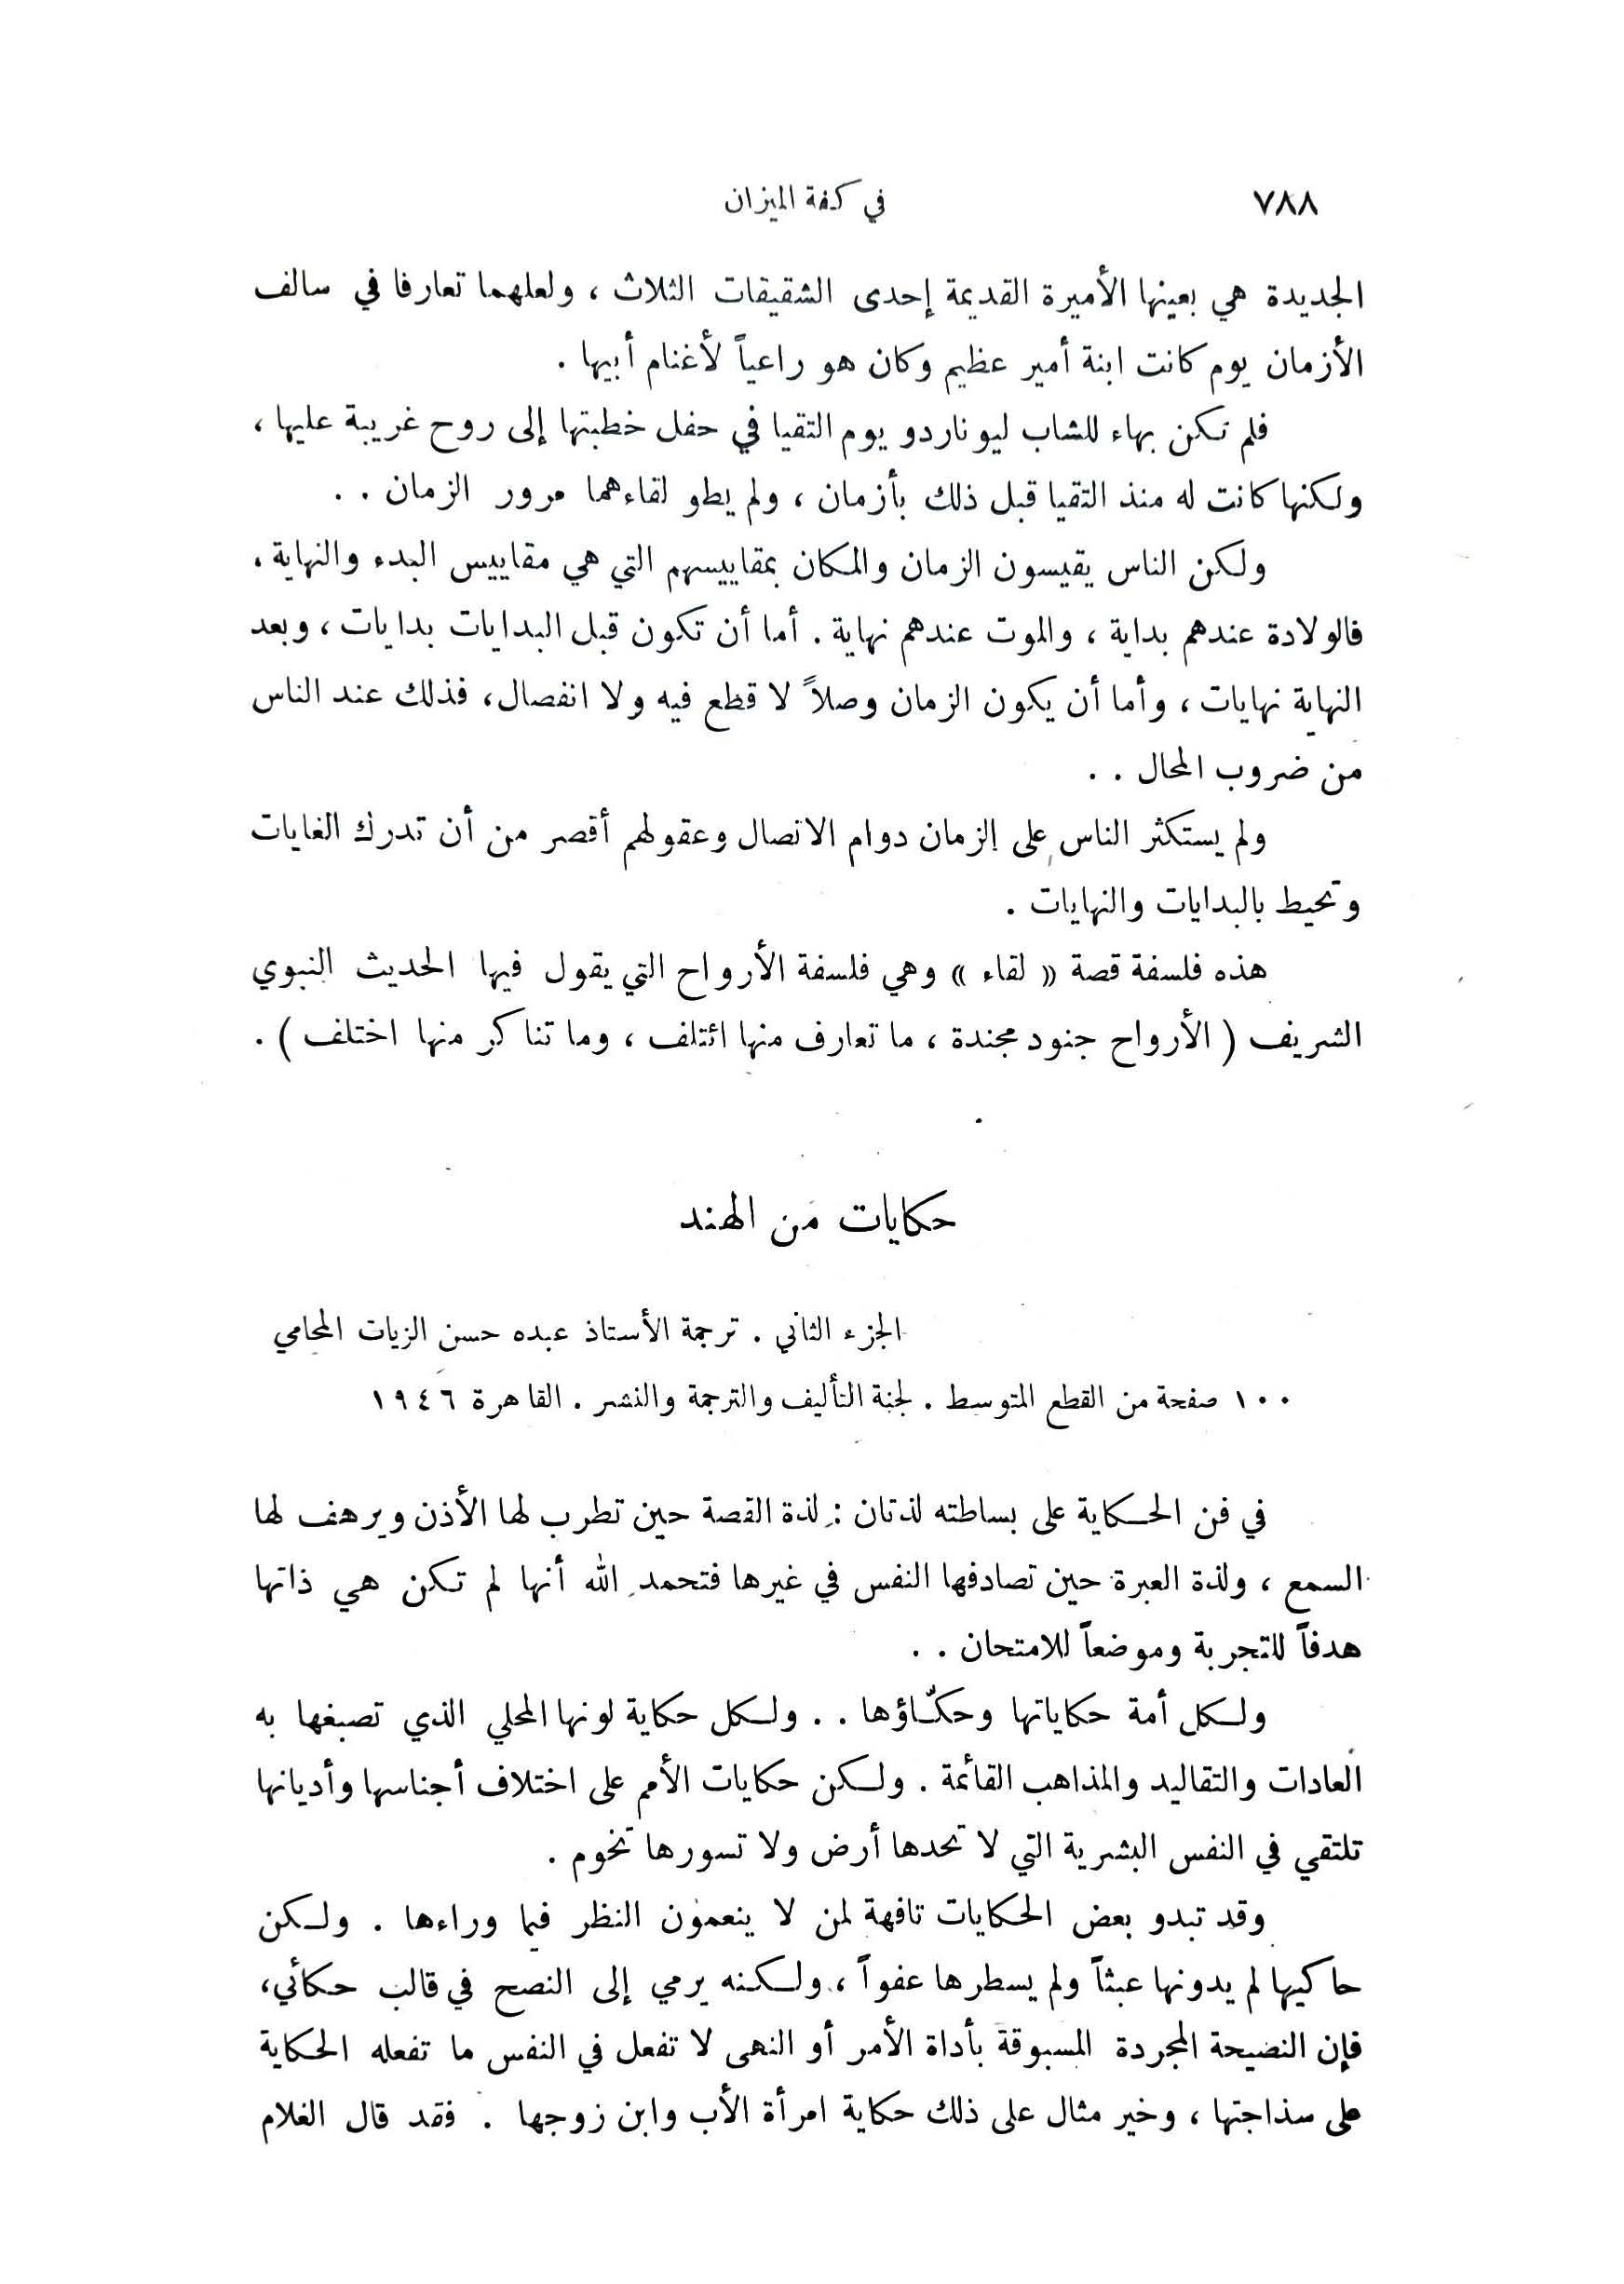 ٧٨٨ في كفة الميزان
الجديدة هي بعينها الأميرة القديمة إحدى الشقيقات الثلاث ، ولعلهما تعارفا في سالف
الأزمان يوم كانت ابنة أمير عظيم وكان هو راعياً لأغنام أبيها .
فلم تكن بهاء للشاب ليوناردو يوم التقيا في حفل خطبتها إلى روح غريبة عليها ،
ولكنها كانت له منذ التقيا قبل ذلك بأزمان ، ولم يطو لقاءهما مرور الزمان . .
ولكن الناس يقيسون الزمان والمكان بمقاييسهم التي هي مقاييس البدء والنهاية .
فالولادة عندهم بداية ، والموت عندهم نهاية . أما أن تكون قبل البدايات بدايات ، وبعد
النهاية نهايات ، وأما أن يكون الزمان وصلاً لا قطع فيه ولا انفصال ، فذلك عند الناس
من ضروب المحال . .
ولم يستكثر الناس على الزمان دوام الاتصال وعقولهم أقصر من أن تدرك الغايات
وتحيط بالبدايات والنهايات .
هذه فلسفة قصة « لقاء » وهي فلسفة الأرواح التي يقول فيها الحديث النبوي
الشريف ( الأرواح جنود مجندة ، ما تعارف منها ائتلف ، وما تناكر منها اختلف ) .
حكايات من الهند
الجزء الثاني . ترجمة الأستاذ عبده حسن الزيات المحامي
١٠٠ صفحة من القطع المتوسط . لجنة التأليف والترجمة والنشر . القاهرة ١٩٤٦
في فن الحكاية على بساطته لذتان : لذة القصة حين تطرب لها الأذن ويرهف لها
السمع ، ولذة العبرة حين تصادفها النفس في غيرها فتحمد الله أنها لم تكن هي ذاتها
هدفاً للتجربة وموضعاً للامتحان . .
ولكل أمة حكاياتها وحكّاؤها . . ولكل حكاية لونها المحلي الذي تصبغها به
العادات والتقاليد والمذاهب القائمة . ولكن حكايات الأمم على اختلاف أجناسها وأديانها
تلتقي في النفس البشرية التي لا تحدها أرض ولا تسورها تخوم .
وقد تبدو بعض الحكايات تافهة لمن لا ينعمون النظر فيما وراءها . ولكن
حاكيها لم يدونها عبثاً ولم يسطرها عفواً ، ولكنه يرمي إلى النصح في قالب حكائي ،
فإن النصيحة المجردة المسبوقة بأداة الأمر أو النهى لا تفعل في النفس ما تفعله الحكاية
على سذاجتها ، وخير مثال على ذلك حكاية امرأة الأب وابن زوجها . فقد قال الغلام